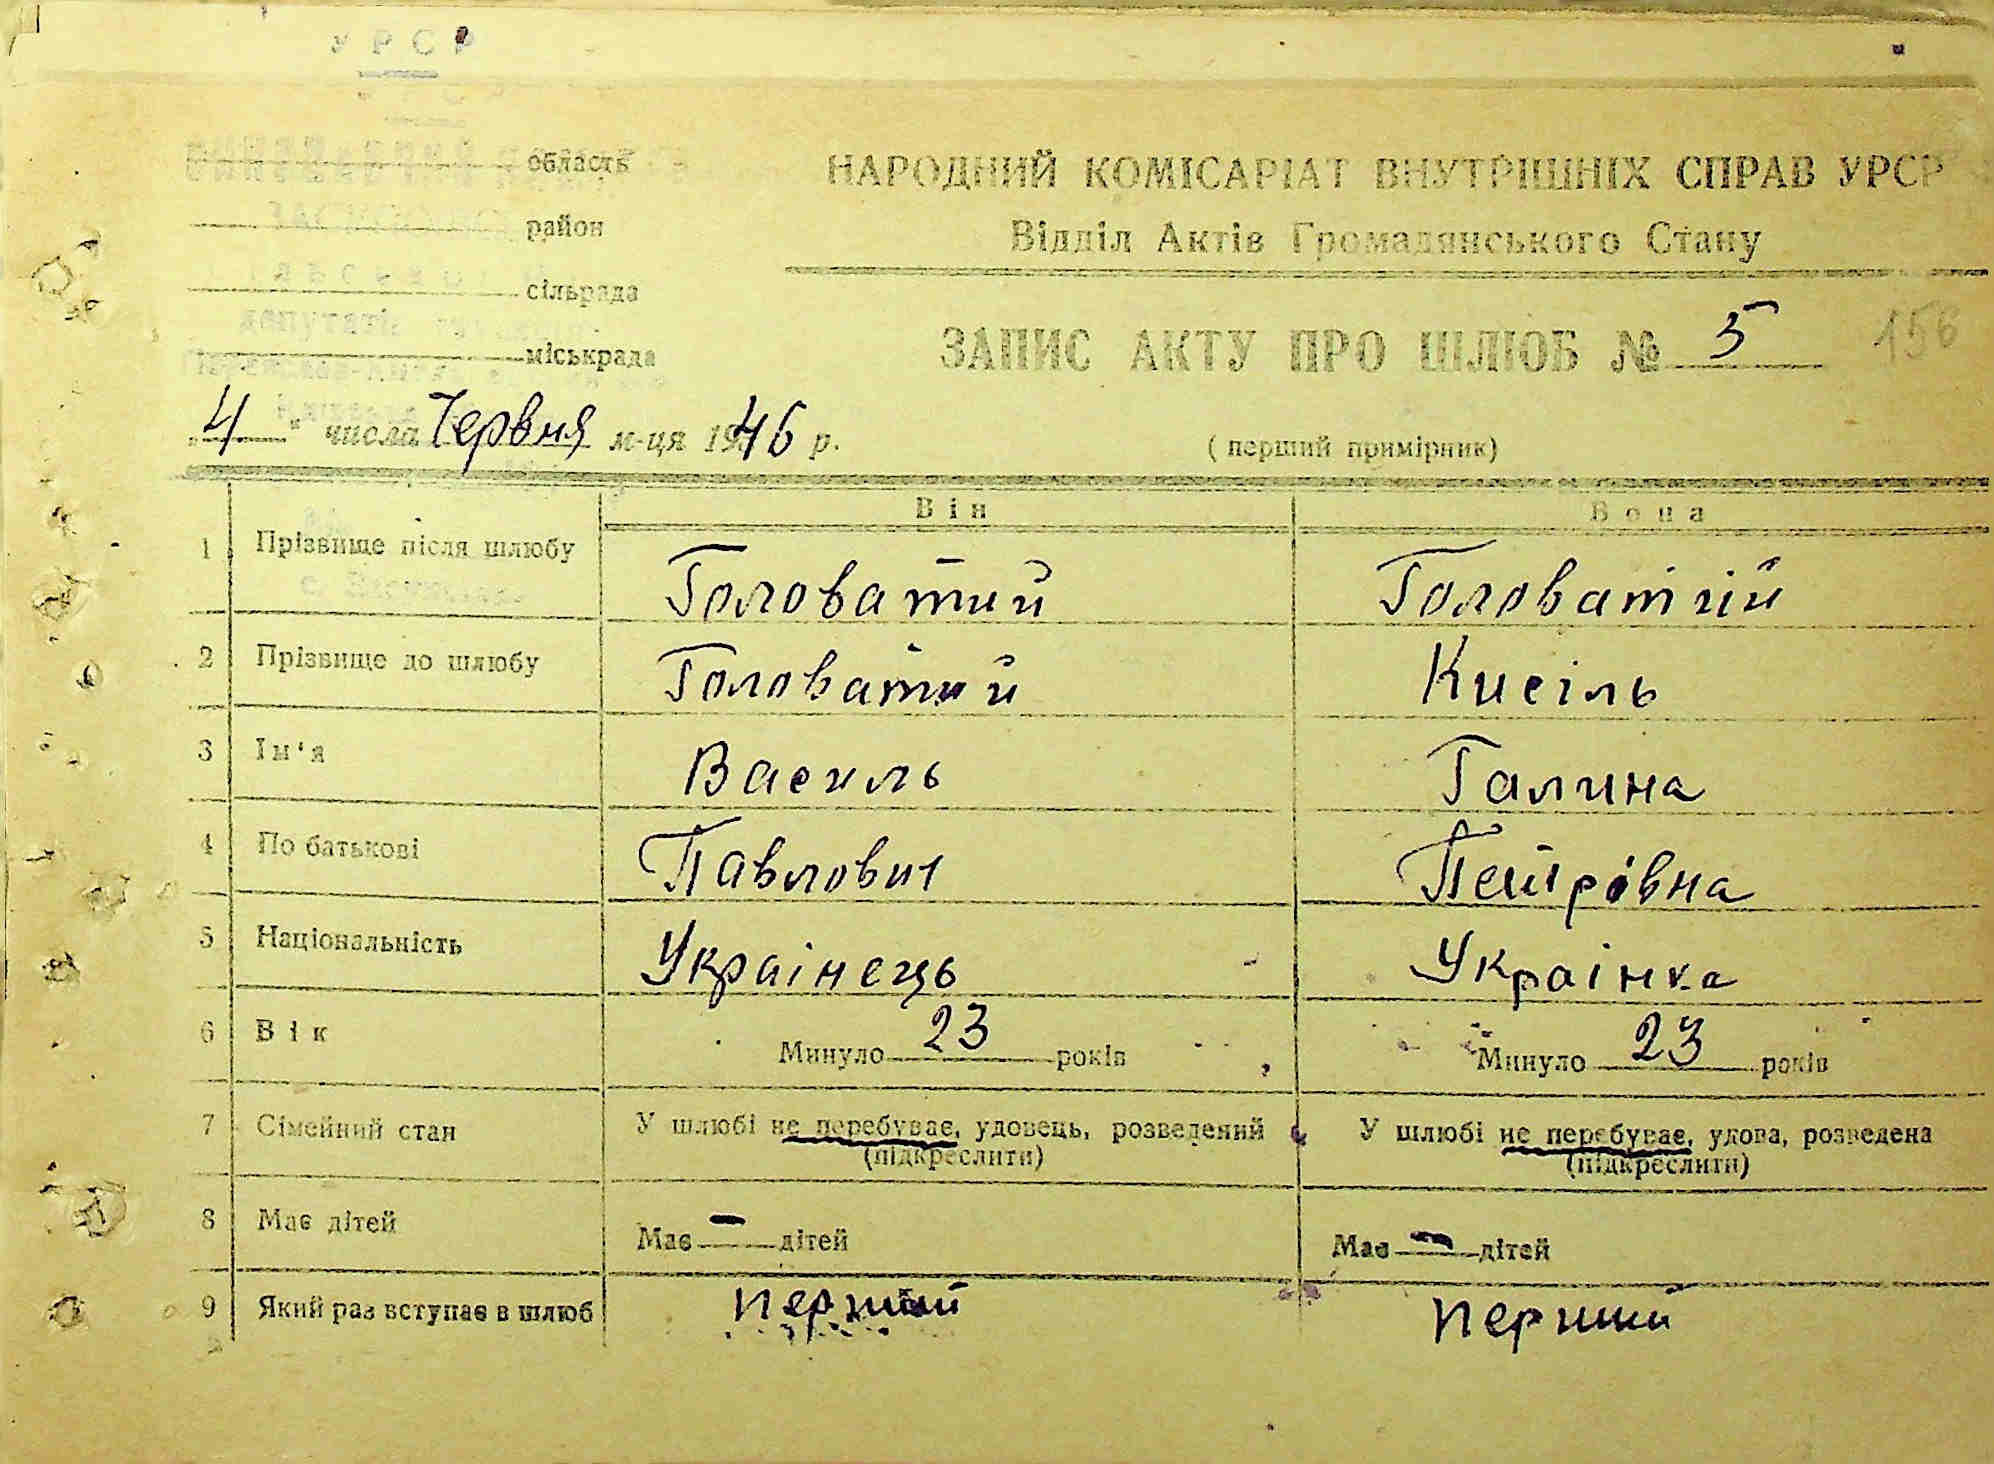 УРСР
область
район
сільрада
міськрада
НАРОДНИЙ КОМІСАРІАТ ВНУТРІШНІХ СПРАВ УРСР
Відділ Актів Громадянського Стану
ЗАПИС АКТУ ПРО ШЛЮБ № 5 156
„4" числа Червня м-ця 1946 р.
(перший примірник)
Він Вона
1 Прізвище після шлюбу Головатий Головатій
2 Прізвище до шлюбу Головатий Кисіль
3 Ім'я Василь Галина
4 По батькові Павлович Петрівна
5 Національність Украінець Украінка
6 Вік Минуло 23 років Минуло 23 років
7 Сімейний стан У шлюбі не перебуває, удовець, розведений У шлюбі не перебуває, удова, розведена
(підкреслити) (підкреслити)
8 Має дітей Має — дітей Має — дітей
9 Який раз вступає в шлюб перший перший